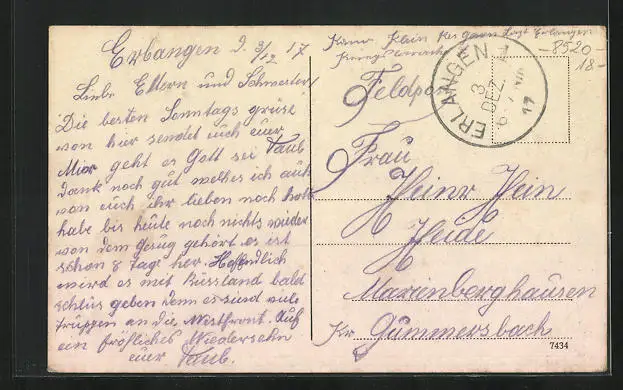 Erlangen d. 3/12 17
Liebe Eltern und Schwester
Die besten Sonntags grüse
von hier sendet euch euer
Taub
Mier geht es Gott sei
Dank noch gut welhes ich auch
von euch ihr lieben noch hofe
habe bis heute noch nichts wieder
von dem gehört es ist
schon 8 tage her. Hoffendlich
wird es mit Russland bald
schlus geben denn es sind viele
trüppen an die Westfront. Auf
ein fröhliches Wiedersehn
euer Taub.
Klein Res Lazt Erlangen
Feldpost
ERLANGEN 1
3
DEZ.
17
-8520-
18-
Frau
Heinr Hein
Heide
Marienberghausen
Kr Gummersbach
7434